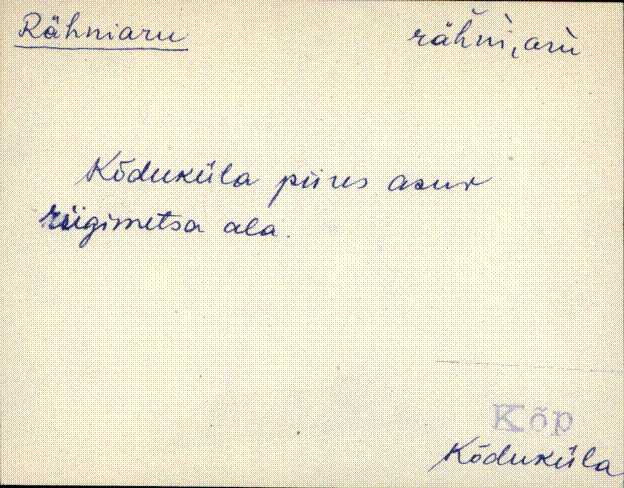 Rähniaru
rähńi, aŕu
Kõduküla piires asuv
riigimetsa ala.
Kõp
Kõduküla